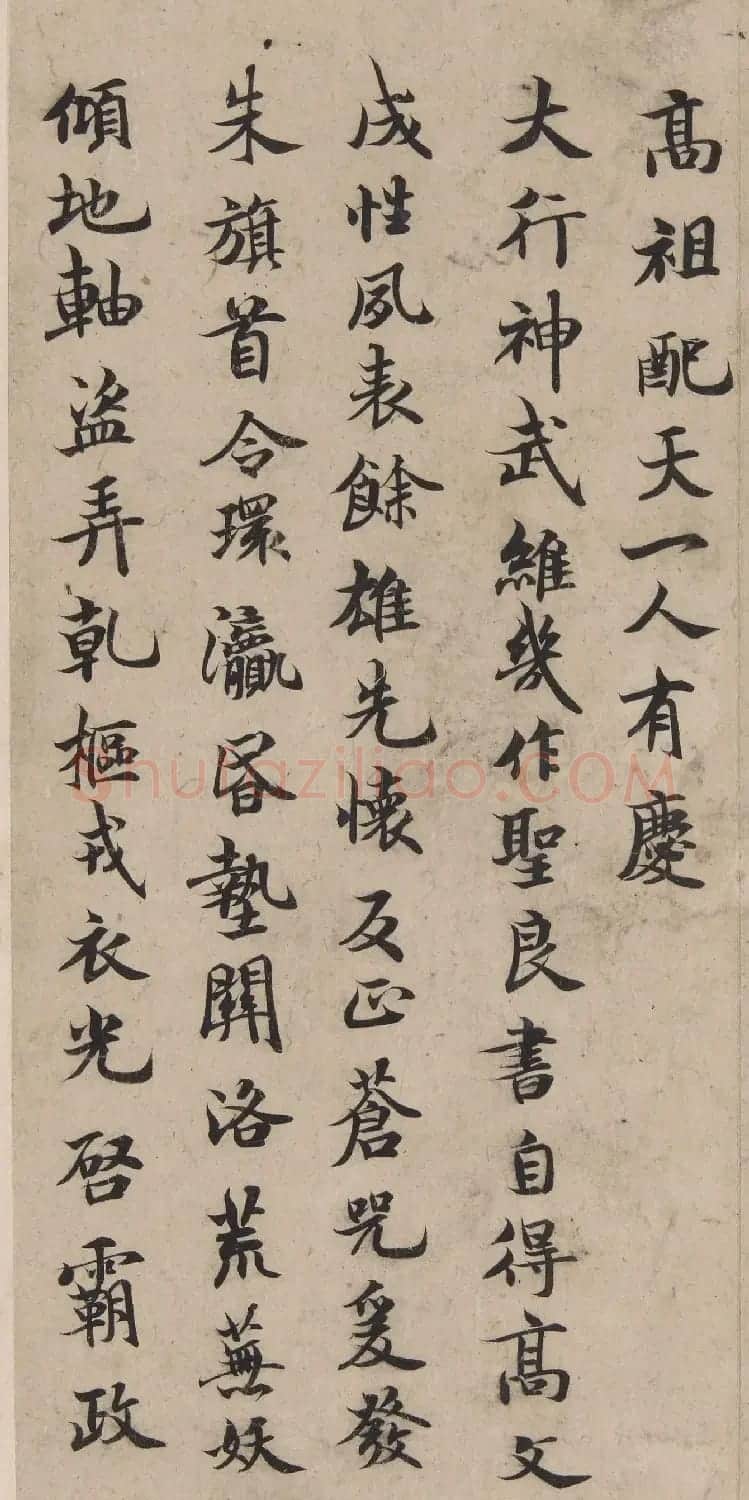 高祖配天一人有慶
大行神武維幾作聖良書自得高文
成性夙表餘雄先懷反正蒼兕爰發
朱旗首令環瀛昏墊關洛荒蕪妖
傾地軸盜弄乾樞戎衣光啓霸政
Shufaziliao.COM